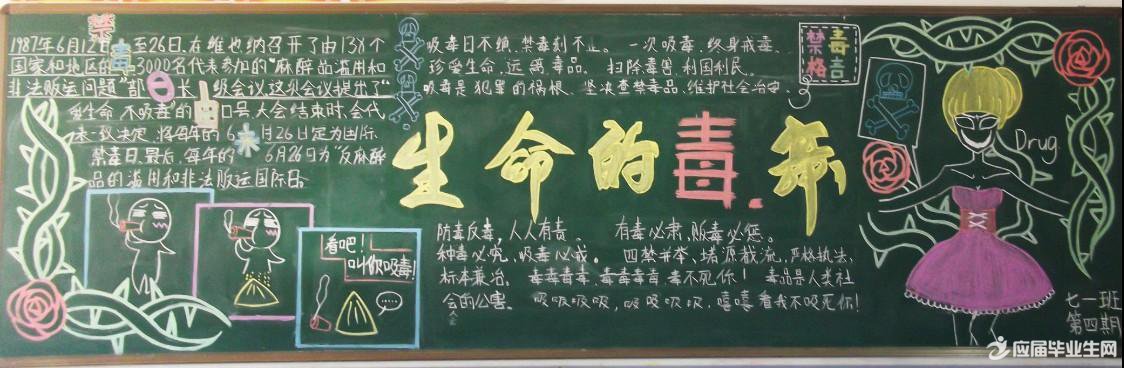 禁毒
1987年6月12日至26日,在维也纳召开了由138个
国家和地区的3000名代表参加的“麻醉品滥用和
非法贩运问题”部长级会议这次会议提出了“
爱生命,不吸毒”的口号,大会结束时,会代
表一致决定,将每年的6月26日定为国际
禁毒日,最后,每年的6月26日为“反麻醉
品的滥用和非法贩运国际日。
吸毒日不绝,禁毒刻不止。 一次吸毒,终身戒毒,
珍爱生命,远离毒品。 扫除毒害,利国利民。
吸毒是犯罪的祸根,坚决查禁毒品,维护社会治安。
禁毒
格言
生命的毒
Drug
看吧!
叫你吸毒!
防毒反毒,人人有责、 有毒必肃,贩毒必惩。
种毒必究,吸毒必戒。 四禁并举、堵源截流,严格执法、
标本兼治。 毒毒毒毒,毒毒毒毒,毒不死你! 毒品是人类社
会的公害。 吸吸吸吸,吸吸吸吸,嘻嘻,看我不吸死你!
七一班
第四期
应届毕业生网